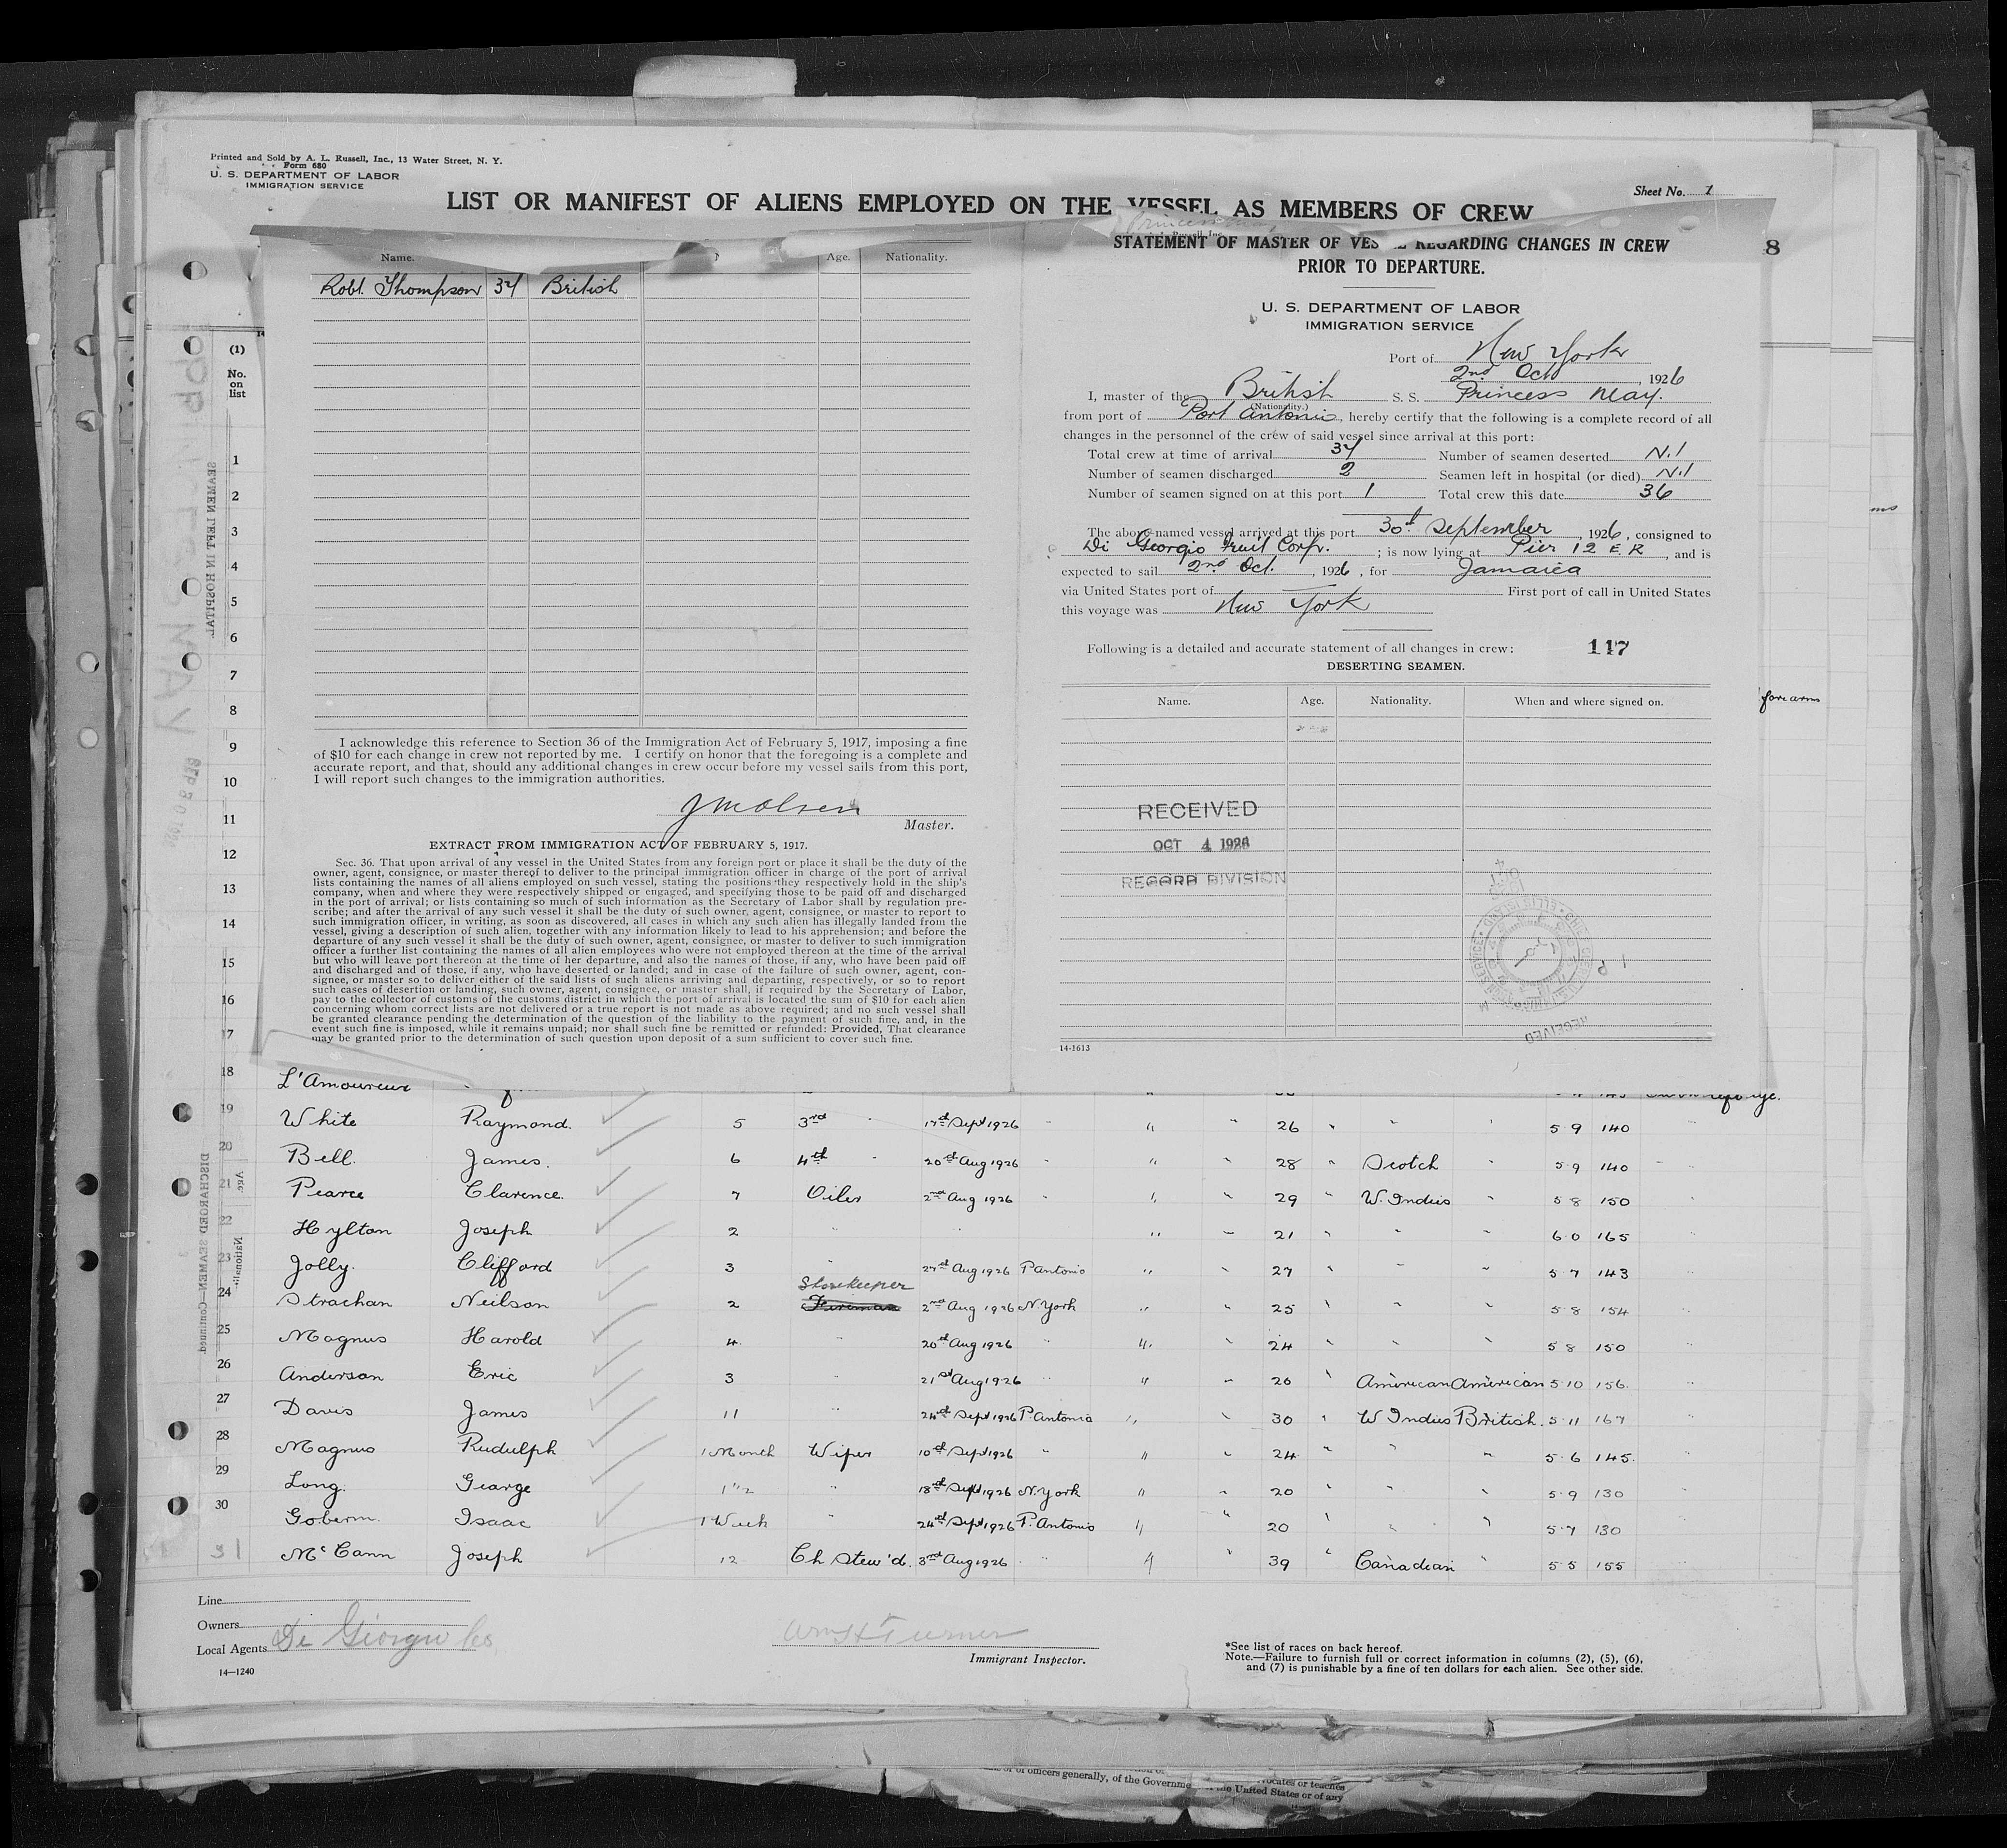 Printed and Sold by A. L. Russell, Inc., 13 Water Street, N. Y.
Form 680
U. S. DEPARTMENT OF LABOR
IMMIGRATION SERVICE
Sheet No. 1
LIST OR MANIFEST OF ALIENS EMPLOYED ON THE VESSEL AS MEMBERS OF CREW
8
Name. Age. Nationality.
Robt. Thompson 34 British
I acknowledge this reference to Section 36 of the Immigration Act of February 5, 1917, imposing a fine
of $10 for each change in crew not reported by me. I certify on honor that the foregoing is a complete and
accurate report, and that, should any additional changes in crew occur before my vessel sails from this port,
I will report such changes to the immigration authorities.
J M Olsen
Master.
EXTRACT FROM IMMIGRATION ACT OF FEBRUARY 5, 1917.
Sec. 36. That upon arrival of any vessel in the United States from any foreign port or place it shall be the duty of the
owner, agent, consignee, or master thereof to deliver to the principal immigration officer in charge of the port of arrival
lists containing the names of all aliens employed on such vessel, stating the positions they respectively hold in the ship's
company, when and where they were respectively shipped or engaged, and specifying those to be paid off and discharged
in the port of arrival; or lists containing so much of such information as the Secretary of Labor shall by regulation pre-
scribe; and after the arrival of any such vessel it shall be the duty of such owner, agent, consignee, or master to report to
such immigration officer, in writing, as soon as discovered, all cases in which any such alien has illegally landed from the
vessel, giving a description of such alien, together with any information likely to lead to his apprehension; and before the
departure of any such vessel it shall be the duty of such owner, agent, consignee, or master to deliver to such immigration
officer a further list containing the names of all alien employees who were not employed thereon at the time of the arrival
but who will leave port thereon at the time of her departure, and also the names of those, if any, who have been paid off
and discharged and of those, if any, who have deserted or landed; and in case of the failure of such owner, agent, con-
signee, or master so to deliver either of the said lists of such aliens arriving and departing, respectively, or so to report
such cases of desertion or landing, such owner, agent, consignee, or master shall, if required by the Secretary of Labor,
pay to the collector of customs of the customs district in which the port of arrival is located the sum of $10 for each alien
concerning whom correct lists are not delivered or a true report is not made as above required; and no such vessel shall
be granted clearance pending the determination of the question of the liability to the payment of such fine, and, in the
event such fine is imposed, while it remains unpaid; nor shall such fine be remitted or refunded: Provided, That clearance
may be granted prior to the determination of such question upon deposit of a sum sufficient to cover such fine.
STATEMENT OF MASTER OF VES REGARDING CHANGES IN CREW
PRIOR TO DEPARTURE.
U. S. DEPARTMENT OF LABOR
IMMIGRATION SERVICE
Port of New York
2nd Oct, 1926
I, master of the British S. S. Princess May.
(Nationality.)
from port of Port Antonio, hereby certify that the following is a complete record of all
changes in the personnel of the crew of said vessel since arrival at this port:
Total crew at time of arrival 37 Number of seamen deserted Nil
Number of seamen discharged 2 Seamen left in hospital (or died) Nil
Number of seamen signed on at this port 1 Total crew this date 36
The above-named vessel arrived at this port 30th September, 1926, consigned to
Di Georgio Fruit Corpr. ; is now lying at Pier 12 E R, and is
expected to sail 2nd Oct., 1926, for Jamaica
via United States port of First port of call in United States
this voyage was New York
Following is a detailed and accurate statement of all changes in crew: 117
DESERTING SEAMEN.
Name. Age. Nationality. When and where signed on.
RECEIVED
OCT 4 1926
RECORD DIVISION
14-1613
forearms
(1)
No.
on
list
1
2
3
4
5
6
7
8
9
10
11
12
13
14
15
16
17
SEAMEN LEFT IN HOSPITAL
DISCHARGED SEAMEN—Continued.
Age. Nationality.
18 L'Amoureux
19 White Raymond. 5 3rd " 17th Sept 1926 " " " 26 " " " 5 9 140
20 Bell. James. 6 4th " 20th Aug 1926 " " " 28 " Scotch " 5 9 140
21 Pearce Clarence. 7 Oiler 2nd Aug 1926 " " " 29 " W. Indies " 5 8 150
22 Hylton Joseph 2 " " " " 21 " " " 6 0 165
23 Jolly. Clifford 3 " 27th Aug 1926 P Antonio " " 27 " " " 5 7 143
24 Strachan Neilson 2 Storekeeper Fireman 2nd Aug 1926 N. York " " 25 " " " 5 8 154
25 Magnus Harold 4 " 20th Aug 1926 " " " 24 " " " 5 8 150
26 Anderson Eric 3 " 21st Aug 1926 " " " 20 " American American 5 10 156
27 Davis James 11 " 24th Sept 1926 P. Antonio " " 30 " W Indies British. 5 11 167
28 Magnus Rudulph 1 Month Wiper 10th Sept 1926 " " " 24 " " " 5 6 145
29 Long. George 1 1/2 " 18th Sept 1926 N. York " " 20 " " " 5 9 130
30 Goberm. Isaac 1 Week " 24th Sept 1926 P. Antonio " " 20 " " " 5 7 130
31 McCann Joseph 12 Ch Stew'd. 3rd Aug 1926 " " " 39 " Canadian " 5 5 155
Line
Owners
Local Agents De Giorgio Co
14—1240
Wm H Turner
Immigrant Inspector.
*See list of races on back hereof.
Note.—Failure to furnish full or correct information in columns (2), (5), (6),
and (7) is punishable by a fine of ten dollars for each alien. See other side.
of officers generally, of the Governme
the United States or of any